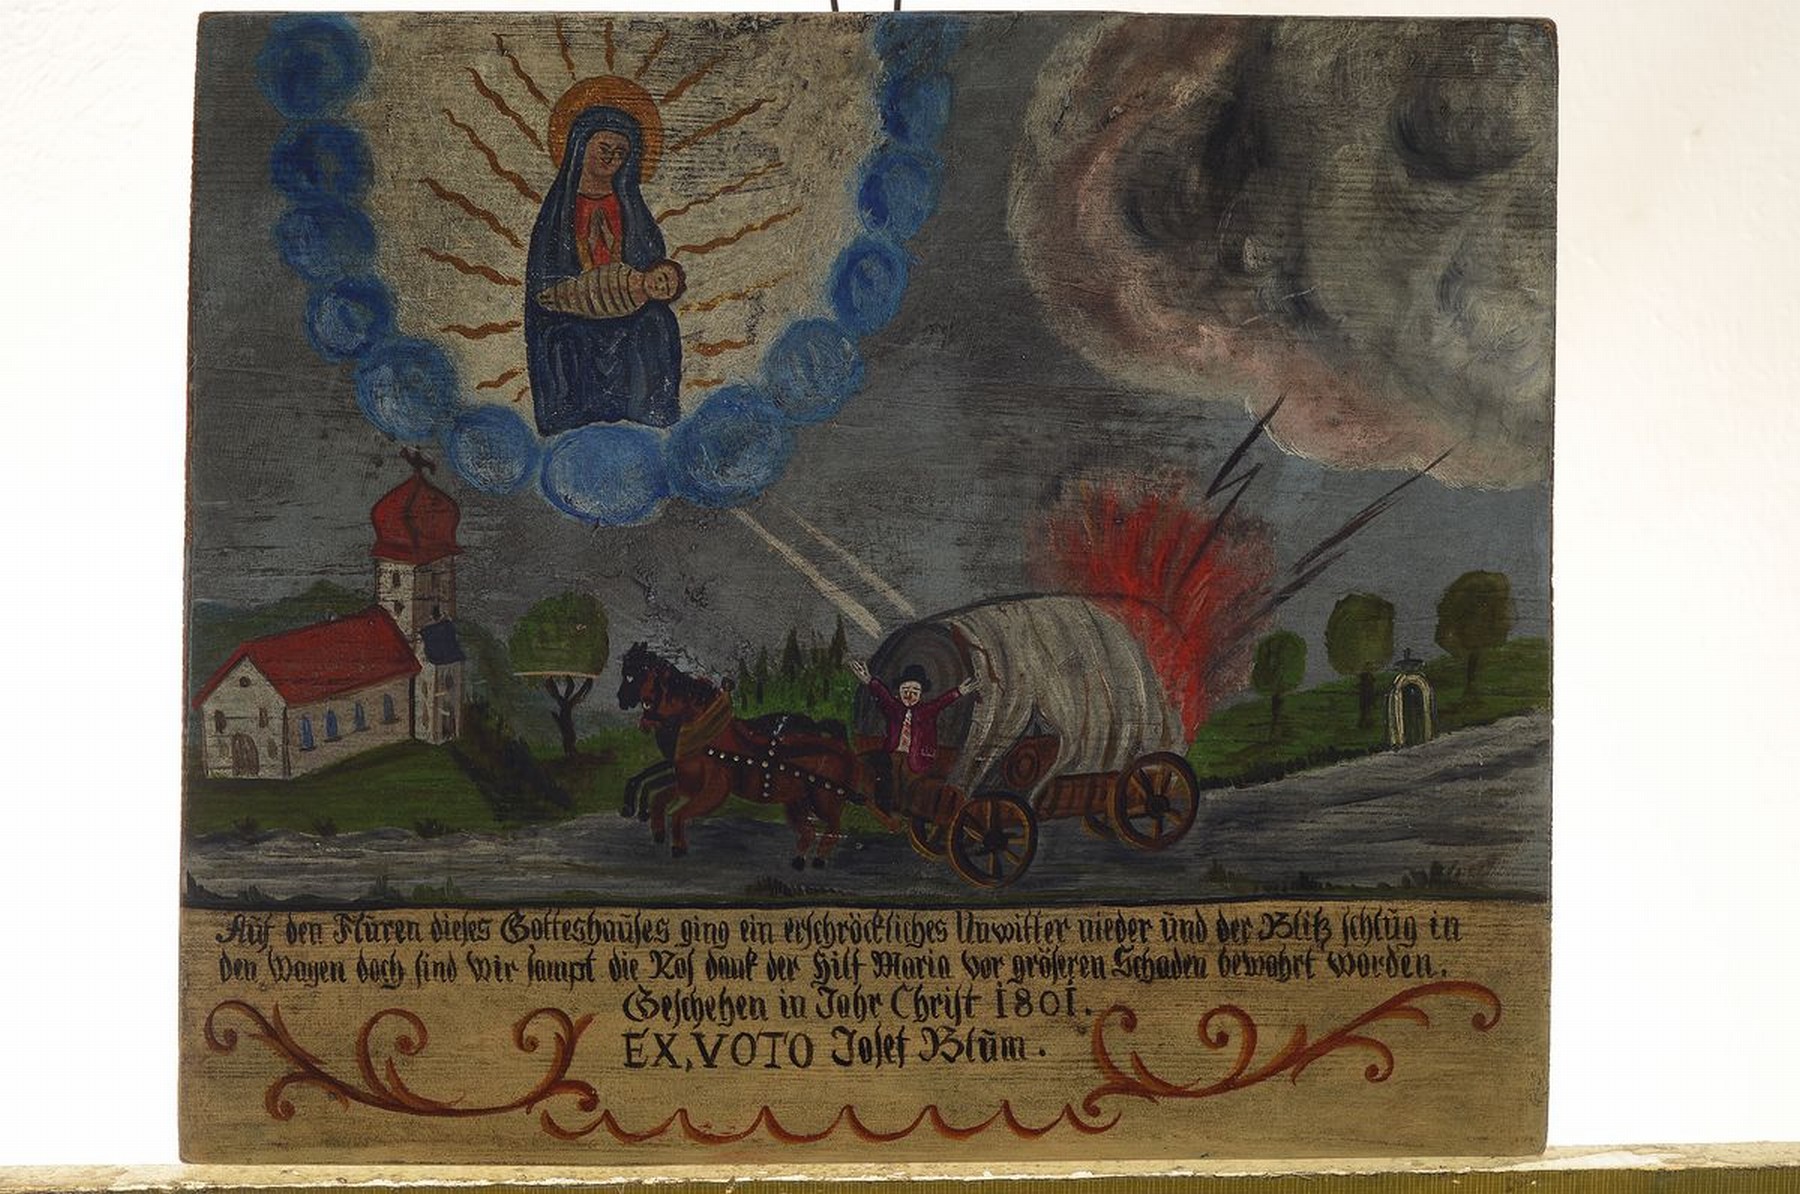 Auf den Flūren dieses Gotteshaūses ging ein erschröckliches Unwitter nieder ūnd der Blitz schlūg in
den Wagen doch sind wir sampt die Ros dank der Hilf Maria vor gröseren Schaden bewahrt worden.
Geschehen in Jahr Christ 1801.
EX, VOTO Josef Blūm.